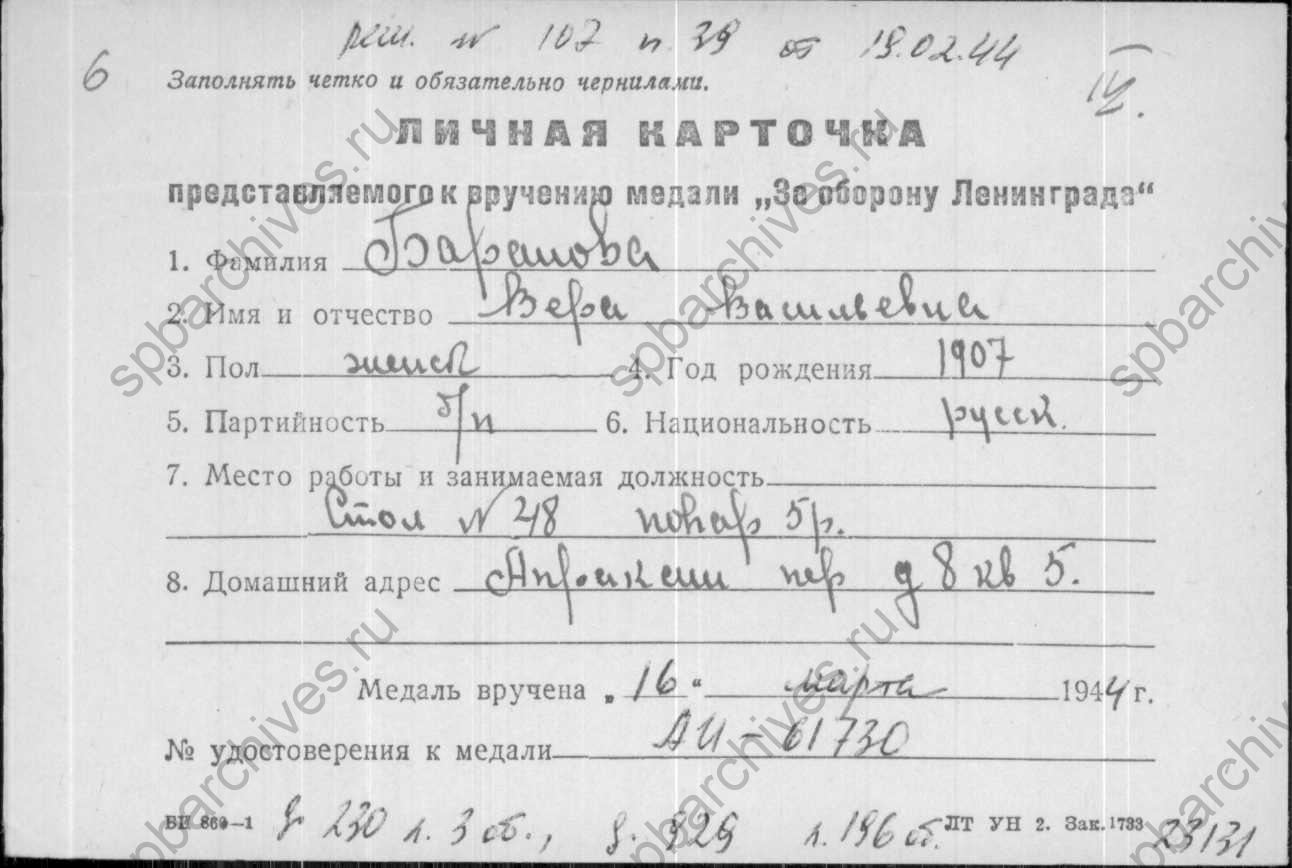 реш. № 107 п. 39 от 19.02.44
6 Заполнять четко и обязательно чернилами.
IV.
ЛИЧНАЯ КАРТОЧКА
представляемого к вручению медали „За оборону Ленинграда“
1. Фамилия Баранова
2. Имя и отчество Вера Васильевна
3. Пол женск 4. Год рождения 1907
5. Партийность б/п 6. Национальность русск.
7. Место работы и занимаемая должность
Стол № 28 повар 5р.
8. Домашний адрес Апраксин пер д 8 кв 5.
Медаль вручена „16“ марта 1944 г.
№ удостоверения к медали АИ – 61730
д. 230 л. 3 об., д. 829 л. 196 об. ЛТ УН 2. Зак. 1733 23131
spbarchives.ru
spbarchives.ru
spbarchives.ru
spbarchives.ru